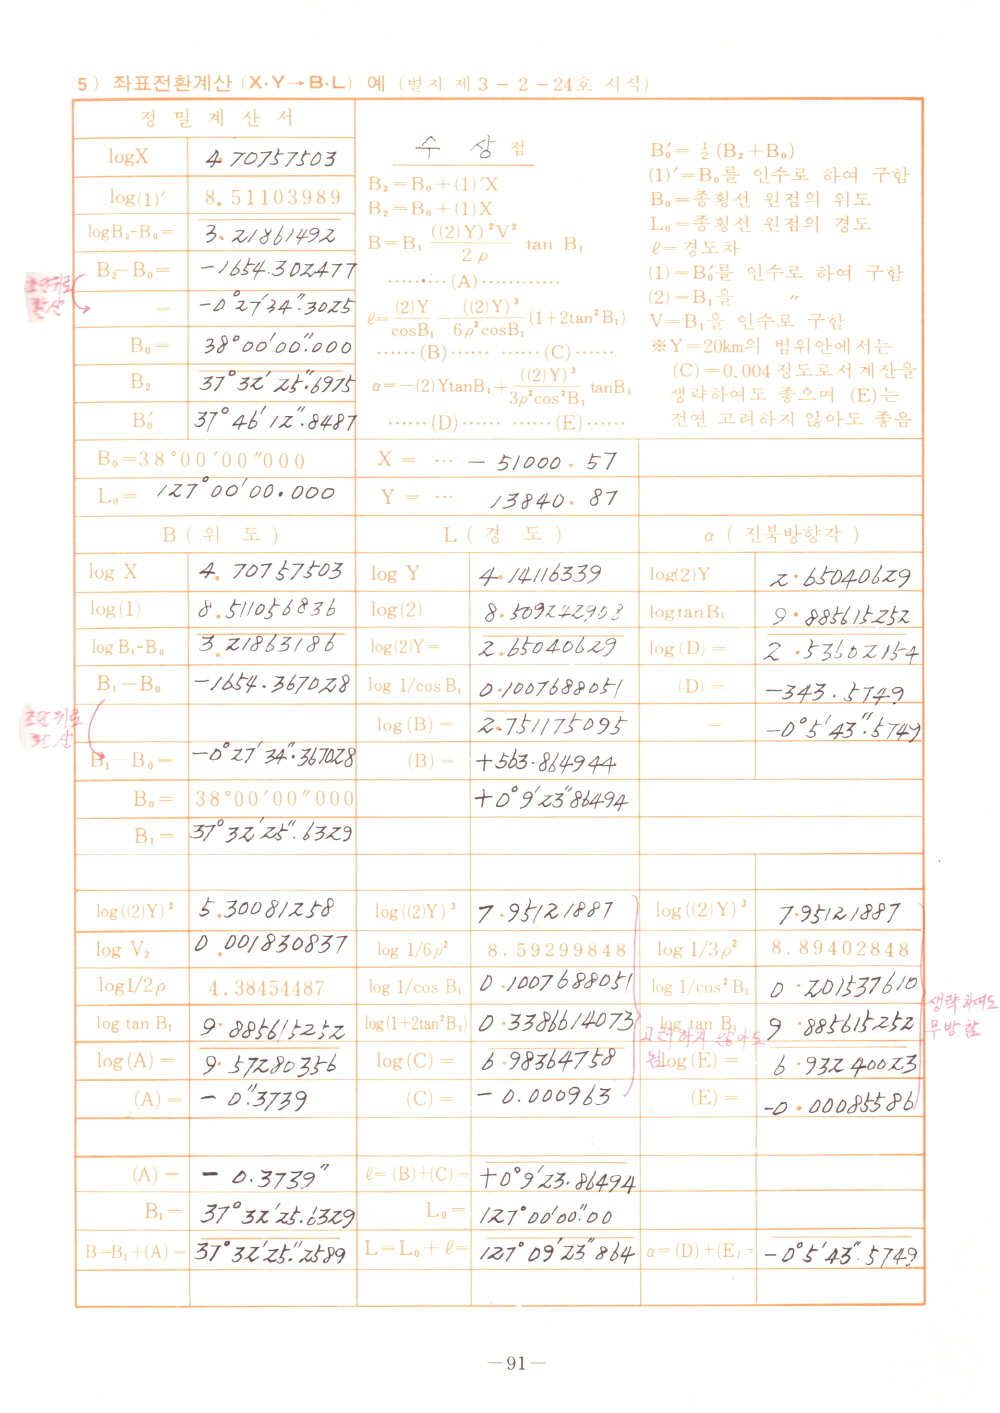 5) 좌표전환계산 (X·Y→B·L) 예 (별지 제3-2-24호 서식)
정 밀 계 산 서
logX 4.70757503
log(1)′ 8.51103989
logB₂-B₀= 3.21861492
B₂-B₀= -1654.302477
초단위로 환산
= -0°27′34″.3025
B₀= 38°00′00″.000
B₂ 37°32′25″.6975
B₀′ 37°46′12″.8487
수 상 점
B₂=B₀+(1)′X
B₂=B₀+(1)X
B=B₁ ((2)Y)²V² / 2ρ tan B₁
……(A)…………
ℓ= (2)Y / cosB₁ - ((2)Y)³ / 6ρ²cosB₁ (1+2tan²B₁)
……(B)…… ……(C)……
α=-(2)YtanB₁+ ((2)Y)³ / 3ρ²cos²B₁ tanB₁
……(D)…… ……(E)……
B₀′= ½(B₂+B₀)
(1)′=B₀를 인수로 하여 구함
B₀=종횡선 원점의 위도
L₀=종횡선 원점의 경도
ℓ=경도차
(1)=B₀′를 인수로 하여 구함
(2)=B₁을 〃
V=B₁을 인수로 구함
※Y=20km의 범위안에서는
(C)=0.004정도로서 계산을
생략하여도 좋으며 (E)는
전연 고려하지 않아도 좋음
B₀=38°00′00″000 X = … - 51000.57
L₀= 127°00′00.000 Y = … 13840.87
B ( 위 도 ) L ( 경 도 ) α ( 진북방향각 )
log X 4.70757503 log Y 4.14116339 log(2)Y 2.65040629
log(1) 8.511056836 log(2) 8.509242903 logtanB₁ 9.885615252
log B₁-B₀ 3.21863186 log(2)Y= 2.65040629 log(D)= 2.53602154
B₁-B₀ -1654.367028 log 1/cosB₁ 0.1007688051 (D)= -343.5749
초단위로 환산
log(B)= 2.751175095 = -0°5′43″.5749
B₁-B₀= -0°27′34″.367028 (B)= +563.864944
B₀= 38°00′00″000 +0°9′23″86494
B₁= 37°32′25″.6329
log((2)Y)² 5.30081258 log((2)Y)³ 7.95121887 log((2)Y)³ 7.95121887
log V₂ 0.001830837 log 1/6ρ² 8.59299848 log 1/3ρ² 8.89402848
log1/2ρ 4.38454487 log 1/cos B₁ 0.1007688051 log 1/cos²B₁ 0.201537610
log tan B₁ 9.885615252 log(1+2tan²B₁) 0.3386614073 log tan B₁ 9.885615252
고려하지 않아도 됨
생략하여도 무방함
log(A)= 9.57280356 log(C)= 6.98364758 log(E)= 6.93240023
(A)= -0″.3739 (C)= -0.000963 (E)= -0.00085586
(A)- -0.3739″ ℓ=(B)+(C)= +0°9′23.86494
B₁= 37°32′25.6329 L₀= 127°00′00″.00
B=B₁+(A)= 37°32′25″.2589 L=L₀+ℓ= 127°09′23″864 α=(D)+(E)= -0°5′43″.5749
—91—